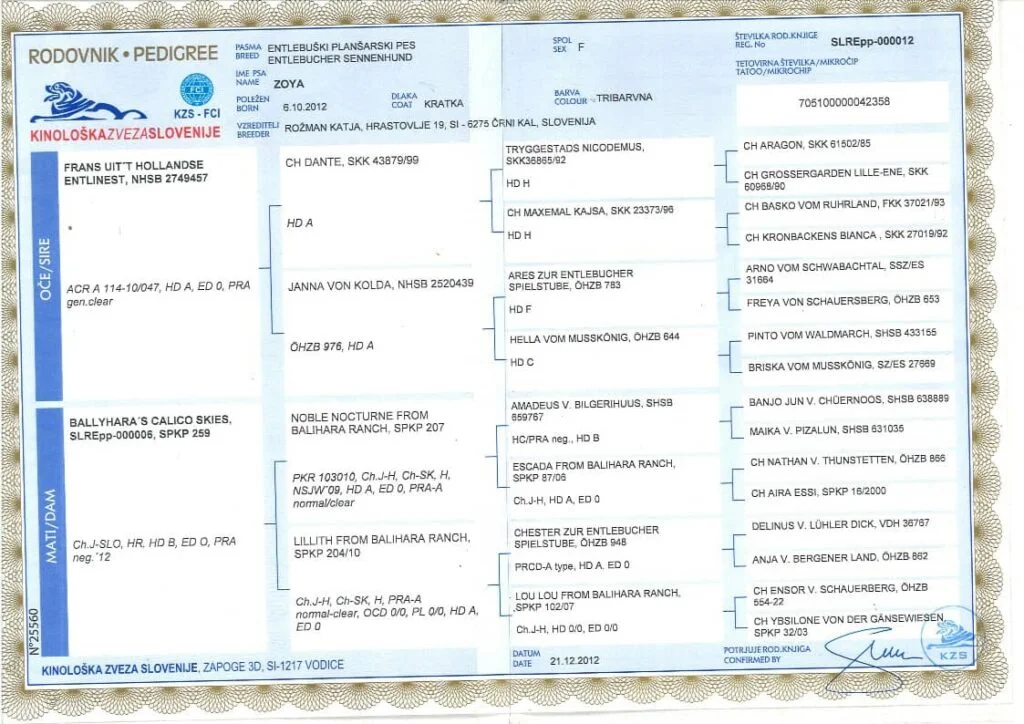 RODOVNIK • PEDIGREE
FCI
KZS - FCI
KINOLOŠKAZVEZASLOVENIJE
PASMA
BREED
ENTLEBUŠKI PLANŠARSKI PES
ENTLEBUCHER SENNENHUND
IME PSA
NAME
ZOYA
POLEŽEN
BORN
6.10.2012
DLAKA
COAT
KRATKA
VZREDITELJ
BREEDER
ROŽMAN KATJA, HRASTOVLJE 19, SI - 6275 ČRNI KAL, SLOVENIJA
SPOL
SEX
F
BARVA
COLOUR
TRIBARVNA
ŠTEVILKA ROD.KNJIGE
REG. No
SLREpp-000012
TETOVIRNA ŠTEVILKA/MIKROČIP
TATOO/MICROCHIP
705100000042358
OČE/SIRE
FRANS UIT'T HOLLANDSE
ENTLINEST, NHSB 2749457
ACR A 114-10/047, HD A, ED 0, PRA
gen.clear
CH DANTE, SKK 43879/99
HD A
JANNA VON KOLDA, NHSB 2520439
ÖHZB 976, HD A
TRYGGESTADS NICODEMUS,
SKK36865/92
HD H
CH MAXEMAL KAJSA, SKK 23373/96
HD H
ARES ZUR ENTLEBUCHER
SPIELSTUBE, ÖHZB 783
HD F
HELLA VOM MUSSKÖNIG, ÖHZB 644
HD C
CH ARAGON, SKK 61502/85
CH GROSSERGARDEN LILLE-ENE, SKK
60968/90
CH BASKO VOM RUHRLAND, FKK 37021/93
CH KRONBACKENS BIANCA , SKK 27019/92
ARNO VOM SCHWABACHTAL, SSZ/ES
31664
FREYA VON SCHAUERSBERG, ÖHZB 653
PINTO VOM WALDMARCH, SHSB 433155
BRISKA VOM MUSSKÖNIG, SZ/ES 27669
MATI/DAM
BALLYHARA´S CALICO SKIES,
SLREpp-000006, SPKP 259
Ch.J-SLO, HR, HD B, ED O, PRA
neg.'12
NOBLE NOCTURNE FROM
BALIHARA RANCH, SPKP 207
PKR 103010, Ch.J-H, Ch-SK, H,
NSJW´09, HD A, ED 0, PRA-A
normal/clear
LILLITH FROM BALIHARA RANCH,
SPKP 204/10
Ch.J-H, Ch-SK, H, PRA-A
normal-clear, OCD 0/0, PL 0/0, HD A,
ED 0
AMADEUS V. BILGERIHUUS, SHSB
659767
HC/PRA neg., HD B
ESCADA FROM BALIHARA RANCH,
SPKP 87/06
Ch.J-H, HD A, ED 0
CHESTER ZUR ENTLEBUCHER
SPIELSTUBE, ÖHZB 948
PRCD-A type, HD A, ED 0
LOU LOU FROM BALIHARA RANCH,
,SPKP 102/07
Ch.J-H, HD 0/0, ED 0/0
BANJO JUN V. CHÜERNOOS, SHSB 638889
MAIKA V. PIZALUN, SHSB 631035
CH NATHAN V. THUNSTETTEN, ÖHZB 866
CH AIRA ESSI, SPKP 16/2000
DELINUS V. LÜHLER DICK, VDH 36767
ANJA V. BERGENER LAND, ÖHZB 862
CH ENSOR V. SCHAUERBERG, ÖHZB
554-22
CH YBSILONE VON DER GÄNSEWIESEN,
SPKP 32/03
N°25560
KINOLOŠKA ZVEZA SLOVENIJE, ZAPOGE 3D, SI-1217 VODICE
DATUM
DATE
21.12.2012
POTRJUJE ROD.KNJIGA
CONFIRMED BY
KZS